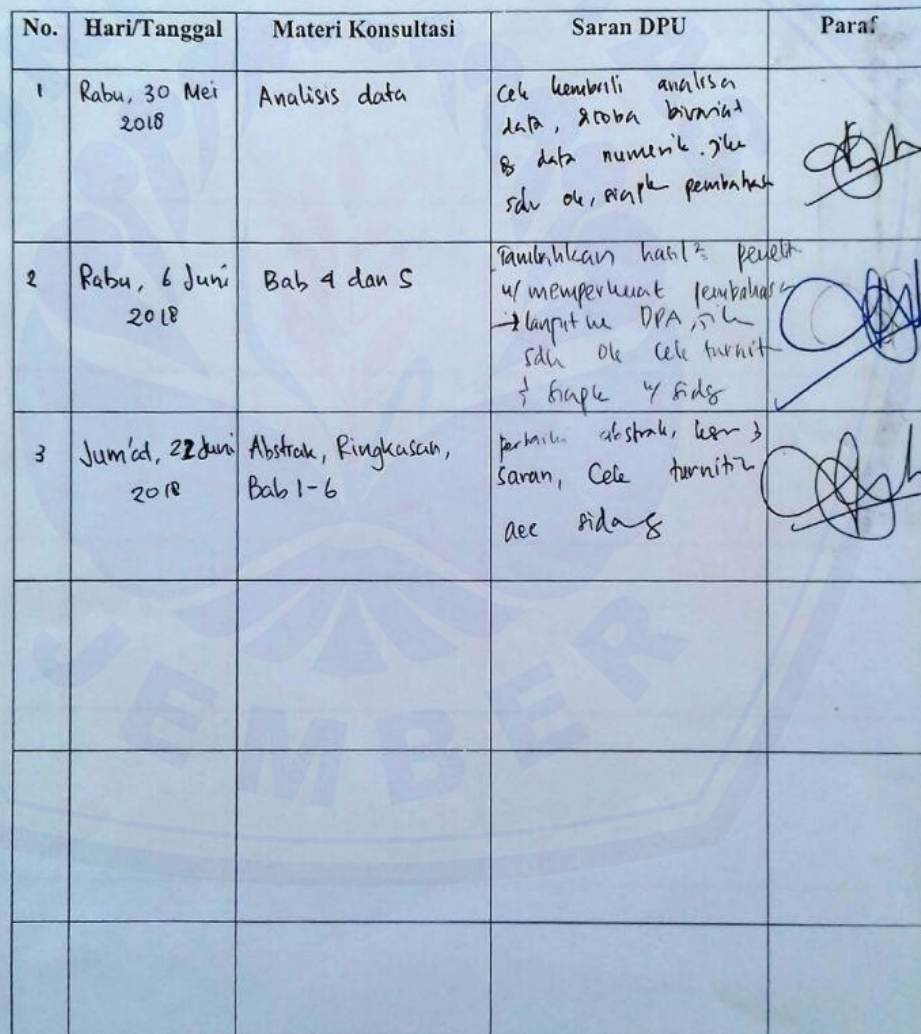 No. Hari/Tanggal Materi Konsultasi Saran DPU Paraf
1 Rabu, 30 Mei 2018
Analisis data
Cek kembali analisa
data, dicoba bivariat
& data numerik. jika
sdh ok, siapk pembahas
2 Rabu, 6 Juni
2018
Bab 4 dan 5
Tambahkan hasil² penelit
u/ memperkuat pembahasa
→ lanjut ke DPA, jika
sdh ok cek turnit
& siapk u/ sidg
3 Jum'at, 22 Juni
2018
Abstrak, Ringkasan,
Bab 1-6
perbaiki abstrak,
saran, Cek turnitin
acc sidang
JEMBER